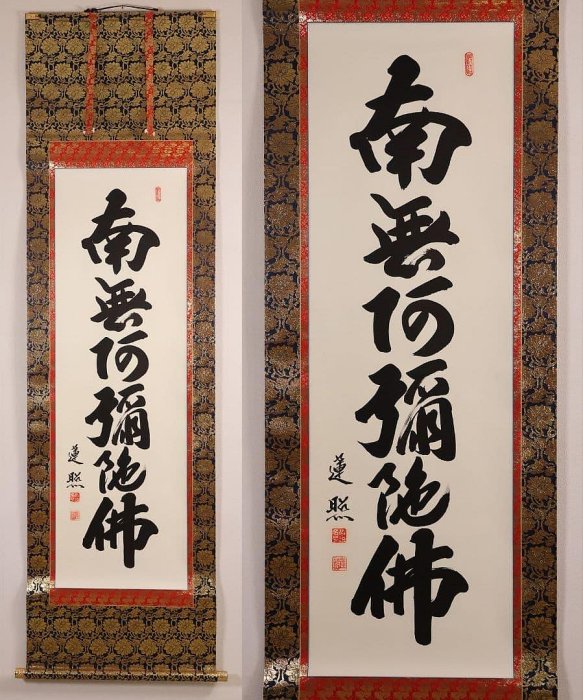 南無阿彌陀佛
蓮照
南無阿彌陀佛
蓮照